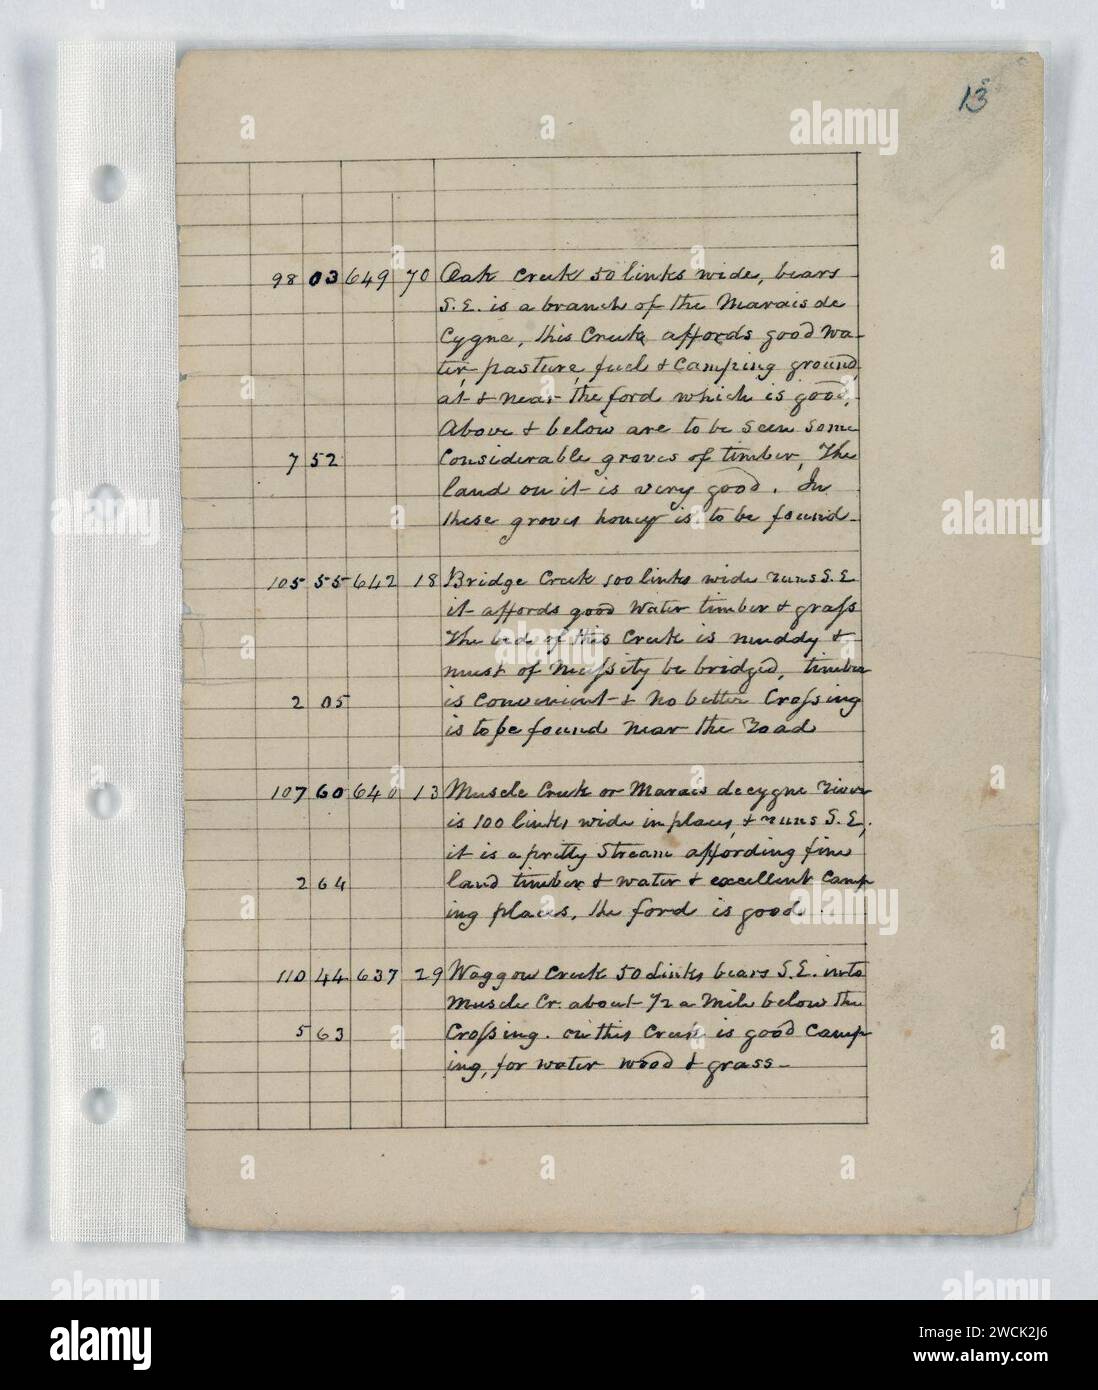 13
98 03 649 70 Oak Creek 50 links wide, bears
S.E. is a branch of the Marais de
Cygne, this Creek affords good wa-
ter, pasture, fuel & Camping ground
at & near the ford which is good,
Above & below are to be seen some
7 52 Considerable groves of timber, The
land on it is very good. In
these groves honey is to be found-
105 55 642 18 Bridge Creek 100 links wide runs S.E
it affords good water timber & grass
The bed of this Creek is muddy &
must of necessity be bridged, timber
2 05 is convenient & no better Crossing
is to be found near the road
107 60 640 13 Muscle Creek or Marais decygne river
is 100 links wide in places, & runs S.E,
it is a pretty Stream affording fine
2 64 land timber & water & excellent Camp
ing places, the ford is good
110 44 637 29 Waggon Creek 50 Links bears S.E. into
Muscle Cr. about 1/2 a Mile below the
5 63 Crossing. on this Creek is good Camp
ing, for water wood & grass-
alamy
Image ID: 2WCK2J6
www.alamy.com